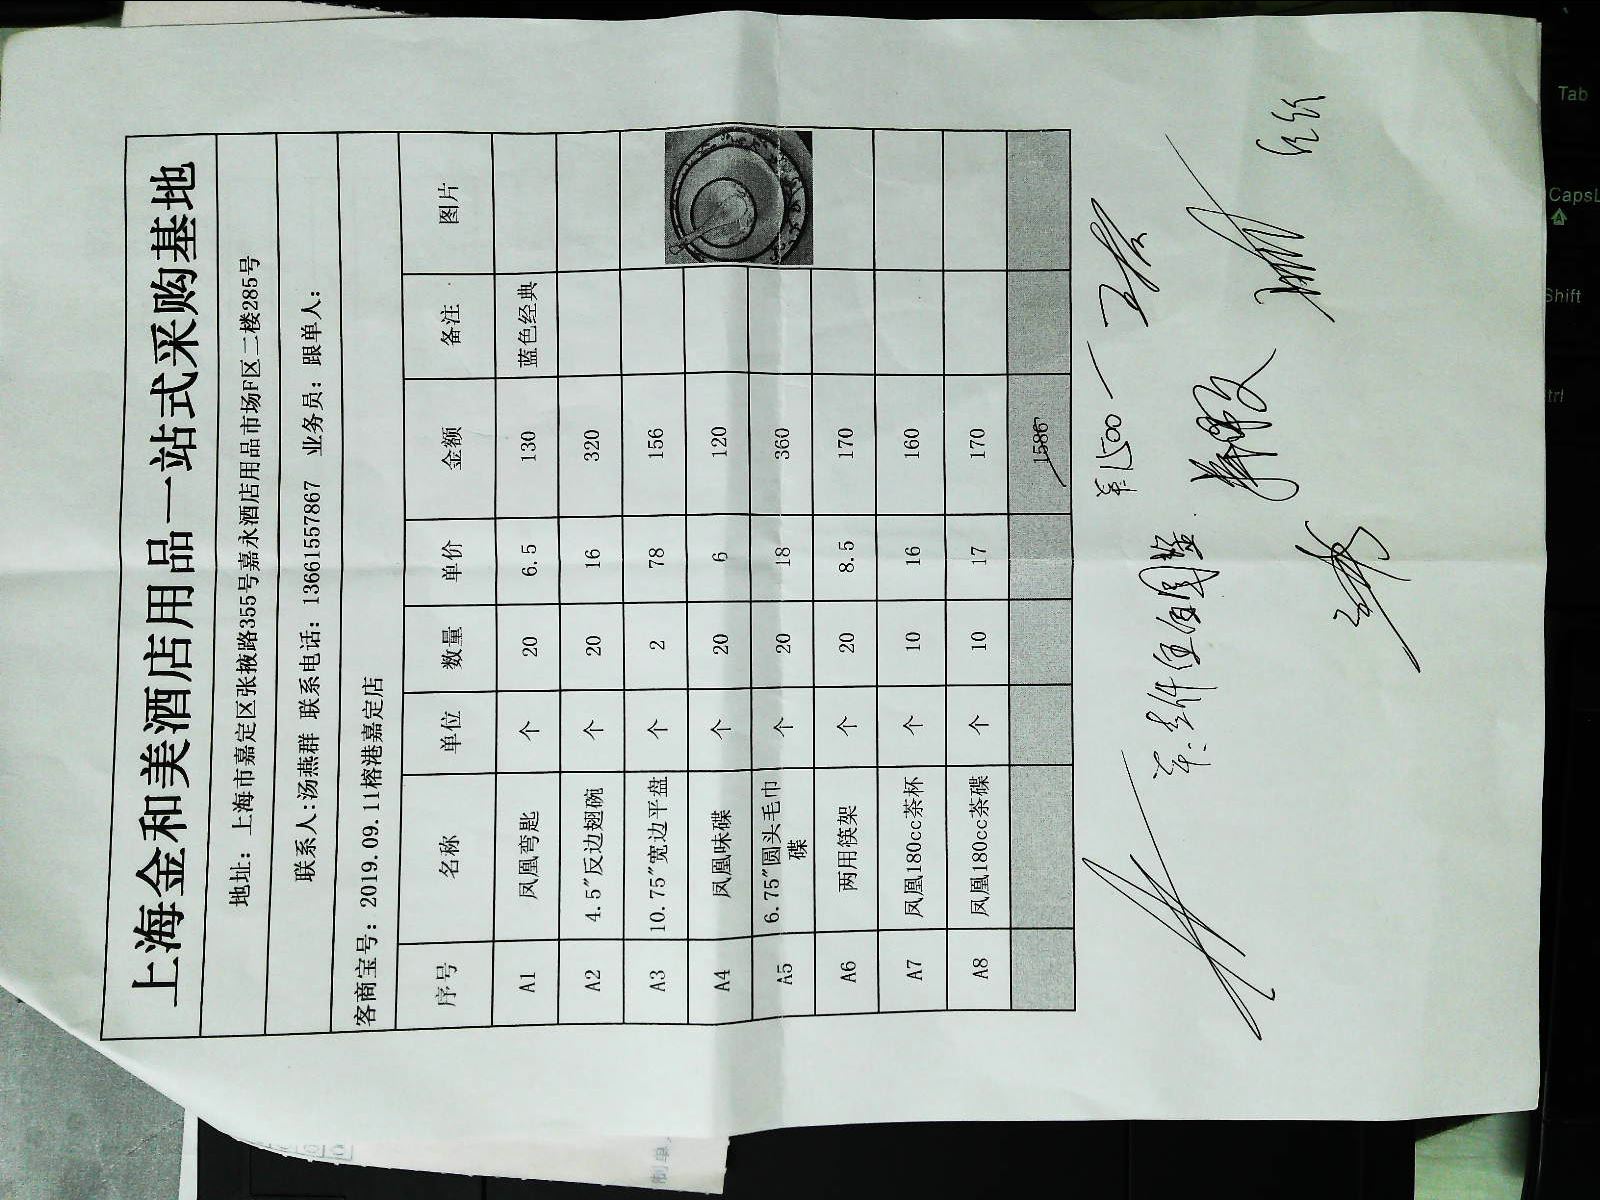 上海金和美酒店用品一站式采购基地
地址：上海市嘉定区张掖路355号嘉永酒店用品市场F区二楼285号
联系人:汤燕群 联系电话：13661557867 业务员：跟单人：
客商宝号：2019.09.11榕港嘉定店
序号 名称 单位 数量 单价 金额 备注 图片
A1 凤凰弯匙 个 20 6.5 130 蓝色经典
A2 4.5"反边翅碗 个 20 16 320
A3 10.75"宽边平盘 个 2 78 156
A4 凤凰味碟 个 20 6 120
A5 6.75"圆头毛巾碟 个 20 18 360
A6 两用筷架 个 20 8.5 170
A7 凤凰180cc茶杯 个 10 16 160
A8 凤凰180cc茶碟 个 10 17 170
1586
1500
制单
Tab
CapsL
Shift
trl